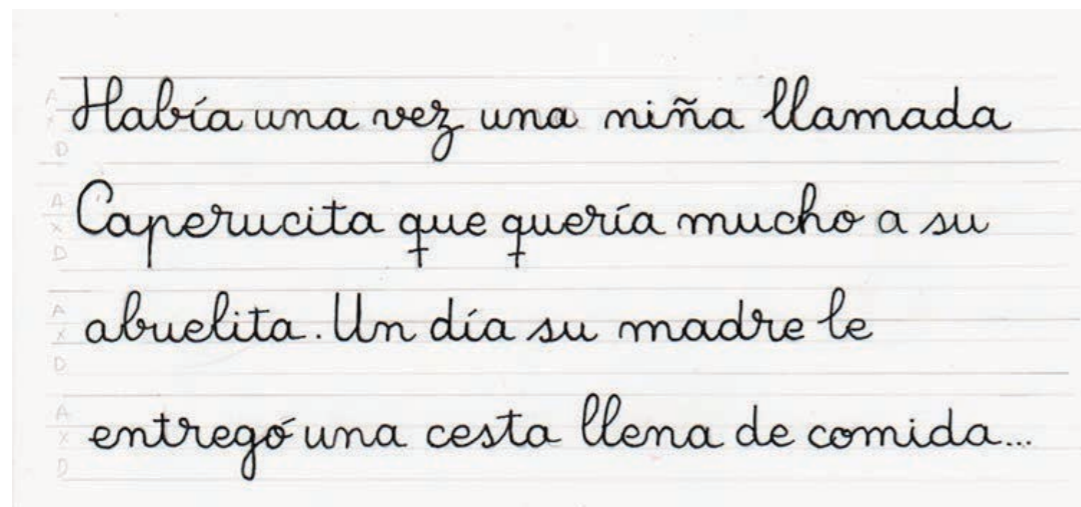 Había una vez una niña llamada
Caperucita que quería mucho a su
abuelita. Un día su madre le
entregó una cesta llena de comida...
A
x
D
A
x
D
A
x
D
A
x
D